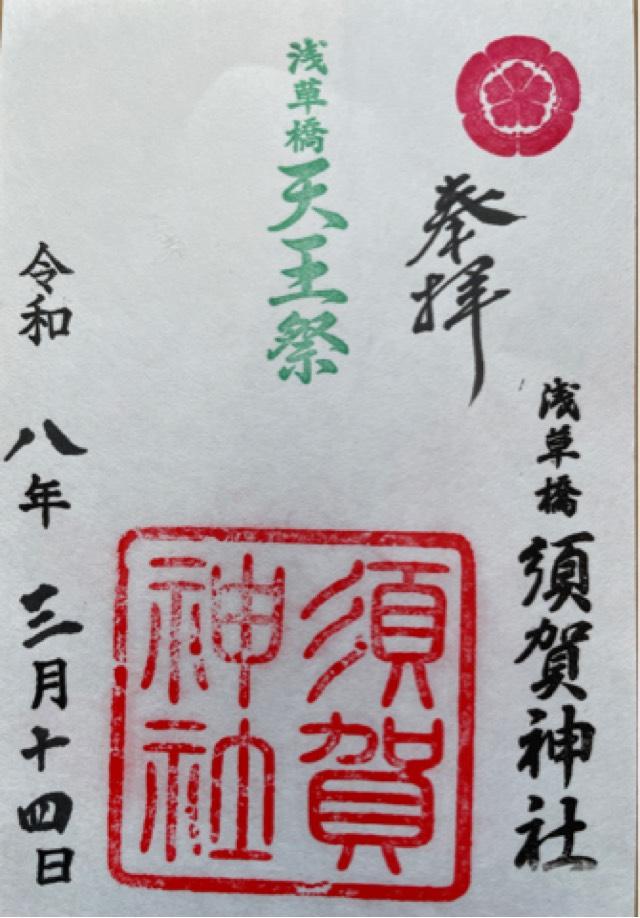 奉拝
浅草橋 須賀神社
浅草橋 天王祭
須賀
神社
令和 八年 三月十四日